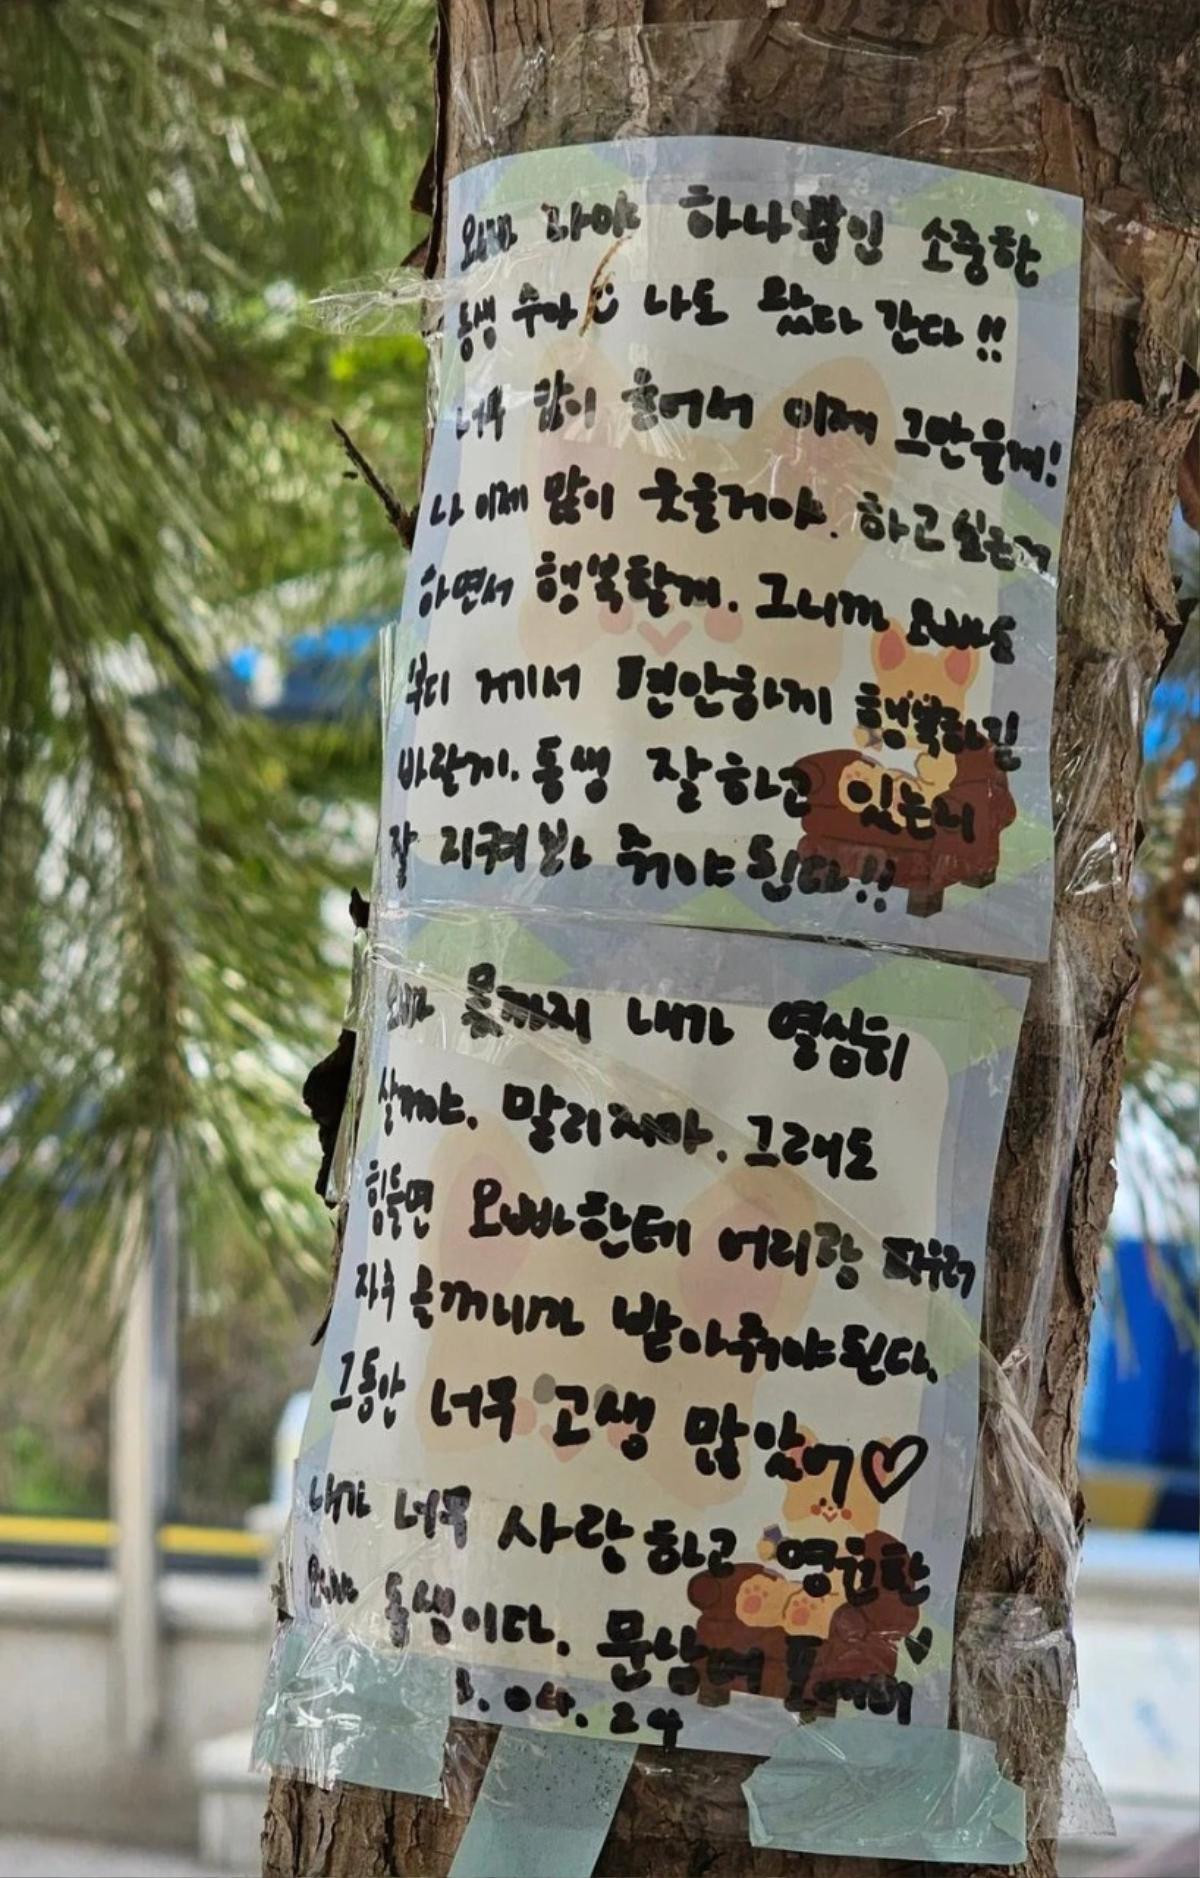 오빠 나야 하나뿐인 소중한
동생 수아 나도 왔다 간다!!
너무 많이 울어서 이제 그만울게!
나 이제 많이 웃을거야. 하고싶은거
하면서 행복할게. 그니까 오빠도
부디 거기서 편안하게 행복하길
바랄게. 동생 잘하고 있는지
잘 지켜봐 줘야 된다!!
오빠 몫까지 내가 열심히
살꺼야. 말리지마. 그래도
힘들면 오빠한테 어리광 피우러
자주 올꺼니까 받아줘야된다.
그동안 너무 고생 많았어♡
내가 너무 사랑하고 영원한
오빠 동생이다. 문남매 포에버
04. 24